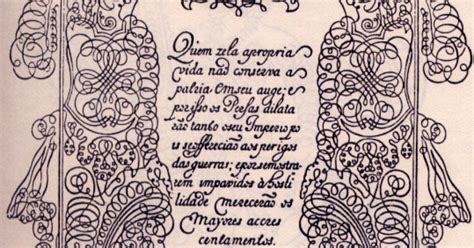 Quem zela apropria
vida naõ conserva a
patria Em seu auge; e
por isso os Persas dilata
raõ tanto oseu Imperio po
s se offereciaõ aos perigos
das guerras; e por se mostra
rem impavidos à hosti
lidade Mereceraõ os
Mayores acces
centamentos.